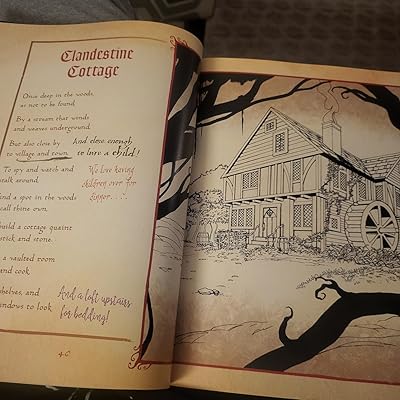 Clandestine
Cottage
Once deep in the woods,
as not to be found,
By a stream that winds
and weaves underground,
But also close by
to village and town,
And close enough
to lure a child!
To spy and watch and
stalk around.
We love having
children over for
dinner. . . .
Find a spot in the woods
call thine own,
build a cottage quaint
brick and stone.
a vaulted room
and cook
shelves, and
windows to look
And a loft upstairs
for bedding!
40